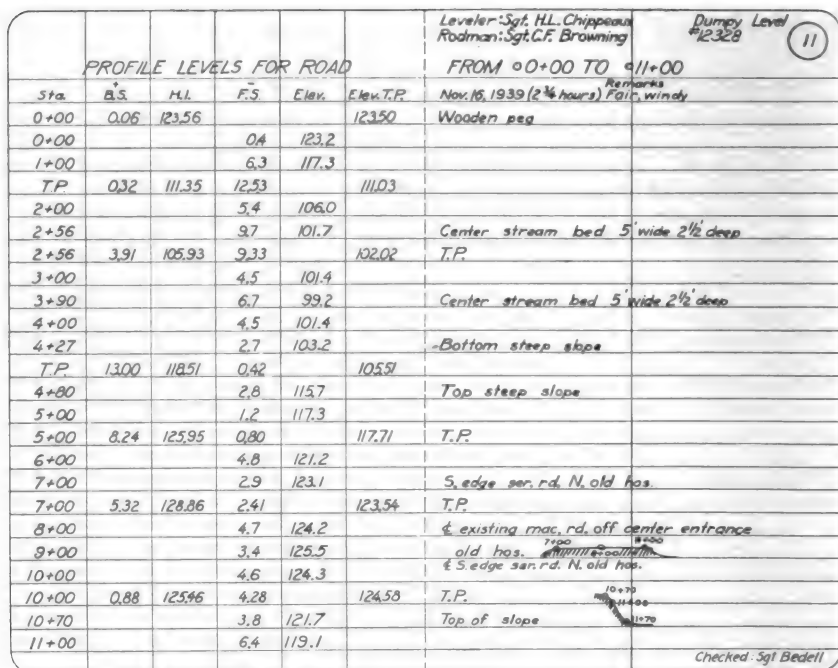 Leveler: Sgt. H.L. Chippeaux Dumpy Level
Rodman: Sgt. C.F. Browning #12328 11
PROFILE LEVELS FOR ROAD FROM 0+00 TO 11+00
Remarks
Sta. + B.S. H.I. - F.S. Elev. Elev. T.P. Nov. 16, 1939 (2 3/4 hours) Fair, windy
0+00 0.06 123.56 123.50 Wooden peg
0+00 0.4 123.2
1+00 6.3 117.3
T.P. 0.32 111.35 12.53 111.03
2+00 5.4 106.0
2+56 9.7 101.7 Center stream bed 5' wide 2½' deep
2+56 3.91 105.93 9.33 102.02 T.P.
3+00 4.5 101.4
3+90 6.7 99.2 Center stream bed 5' wide 2½' deep
4+00 4.5 101.4
4+27 2.7 103.2 -Bottom steep slope
T.P. 13.00 118.51 0.42 105.51
4+80 2.8 115.7 Top steep slope
5+00 1.2 117.3
5+00 8.24 125.95 0.80 117.71 T.P.
6+00 4.8 121.2
7+00 2.9 123.1 S. edge ser. rd. N. old hos.
7+00 5.32 128.86 2.41 123.54 T.P.
8+00 4.7 124.2 ℄ existing mac. rd. off center entrance
9+00 3.4 125.5 old hos. 7+00 8+00
10+00 4.6 124.3 ℄ S. edge ser. rd. N. old hos.
10+00 0.88 125.46 4.28 124.58 T.P. 10+70
11+00
10+70 3.8 121.7 Top of slope 11+70
11+00 6.4 119.1
Checked: Sgt Bedell